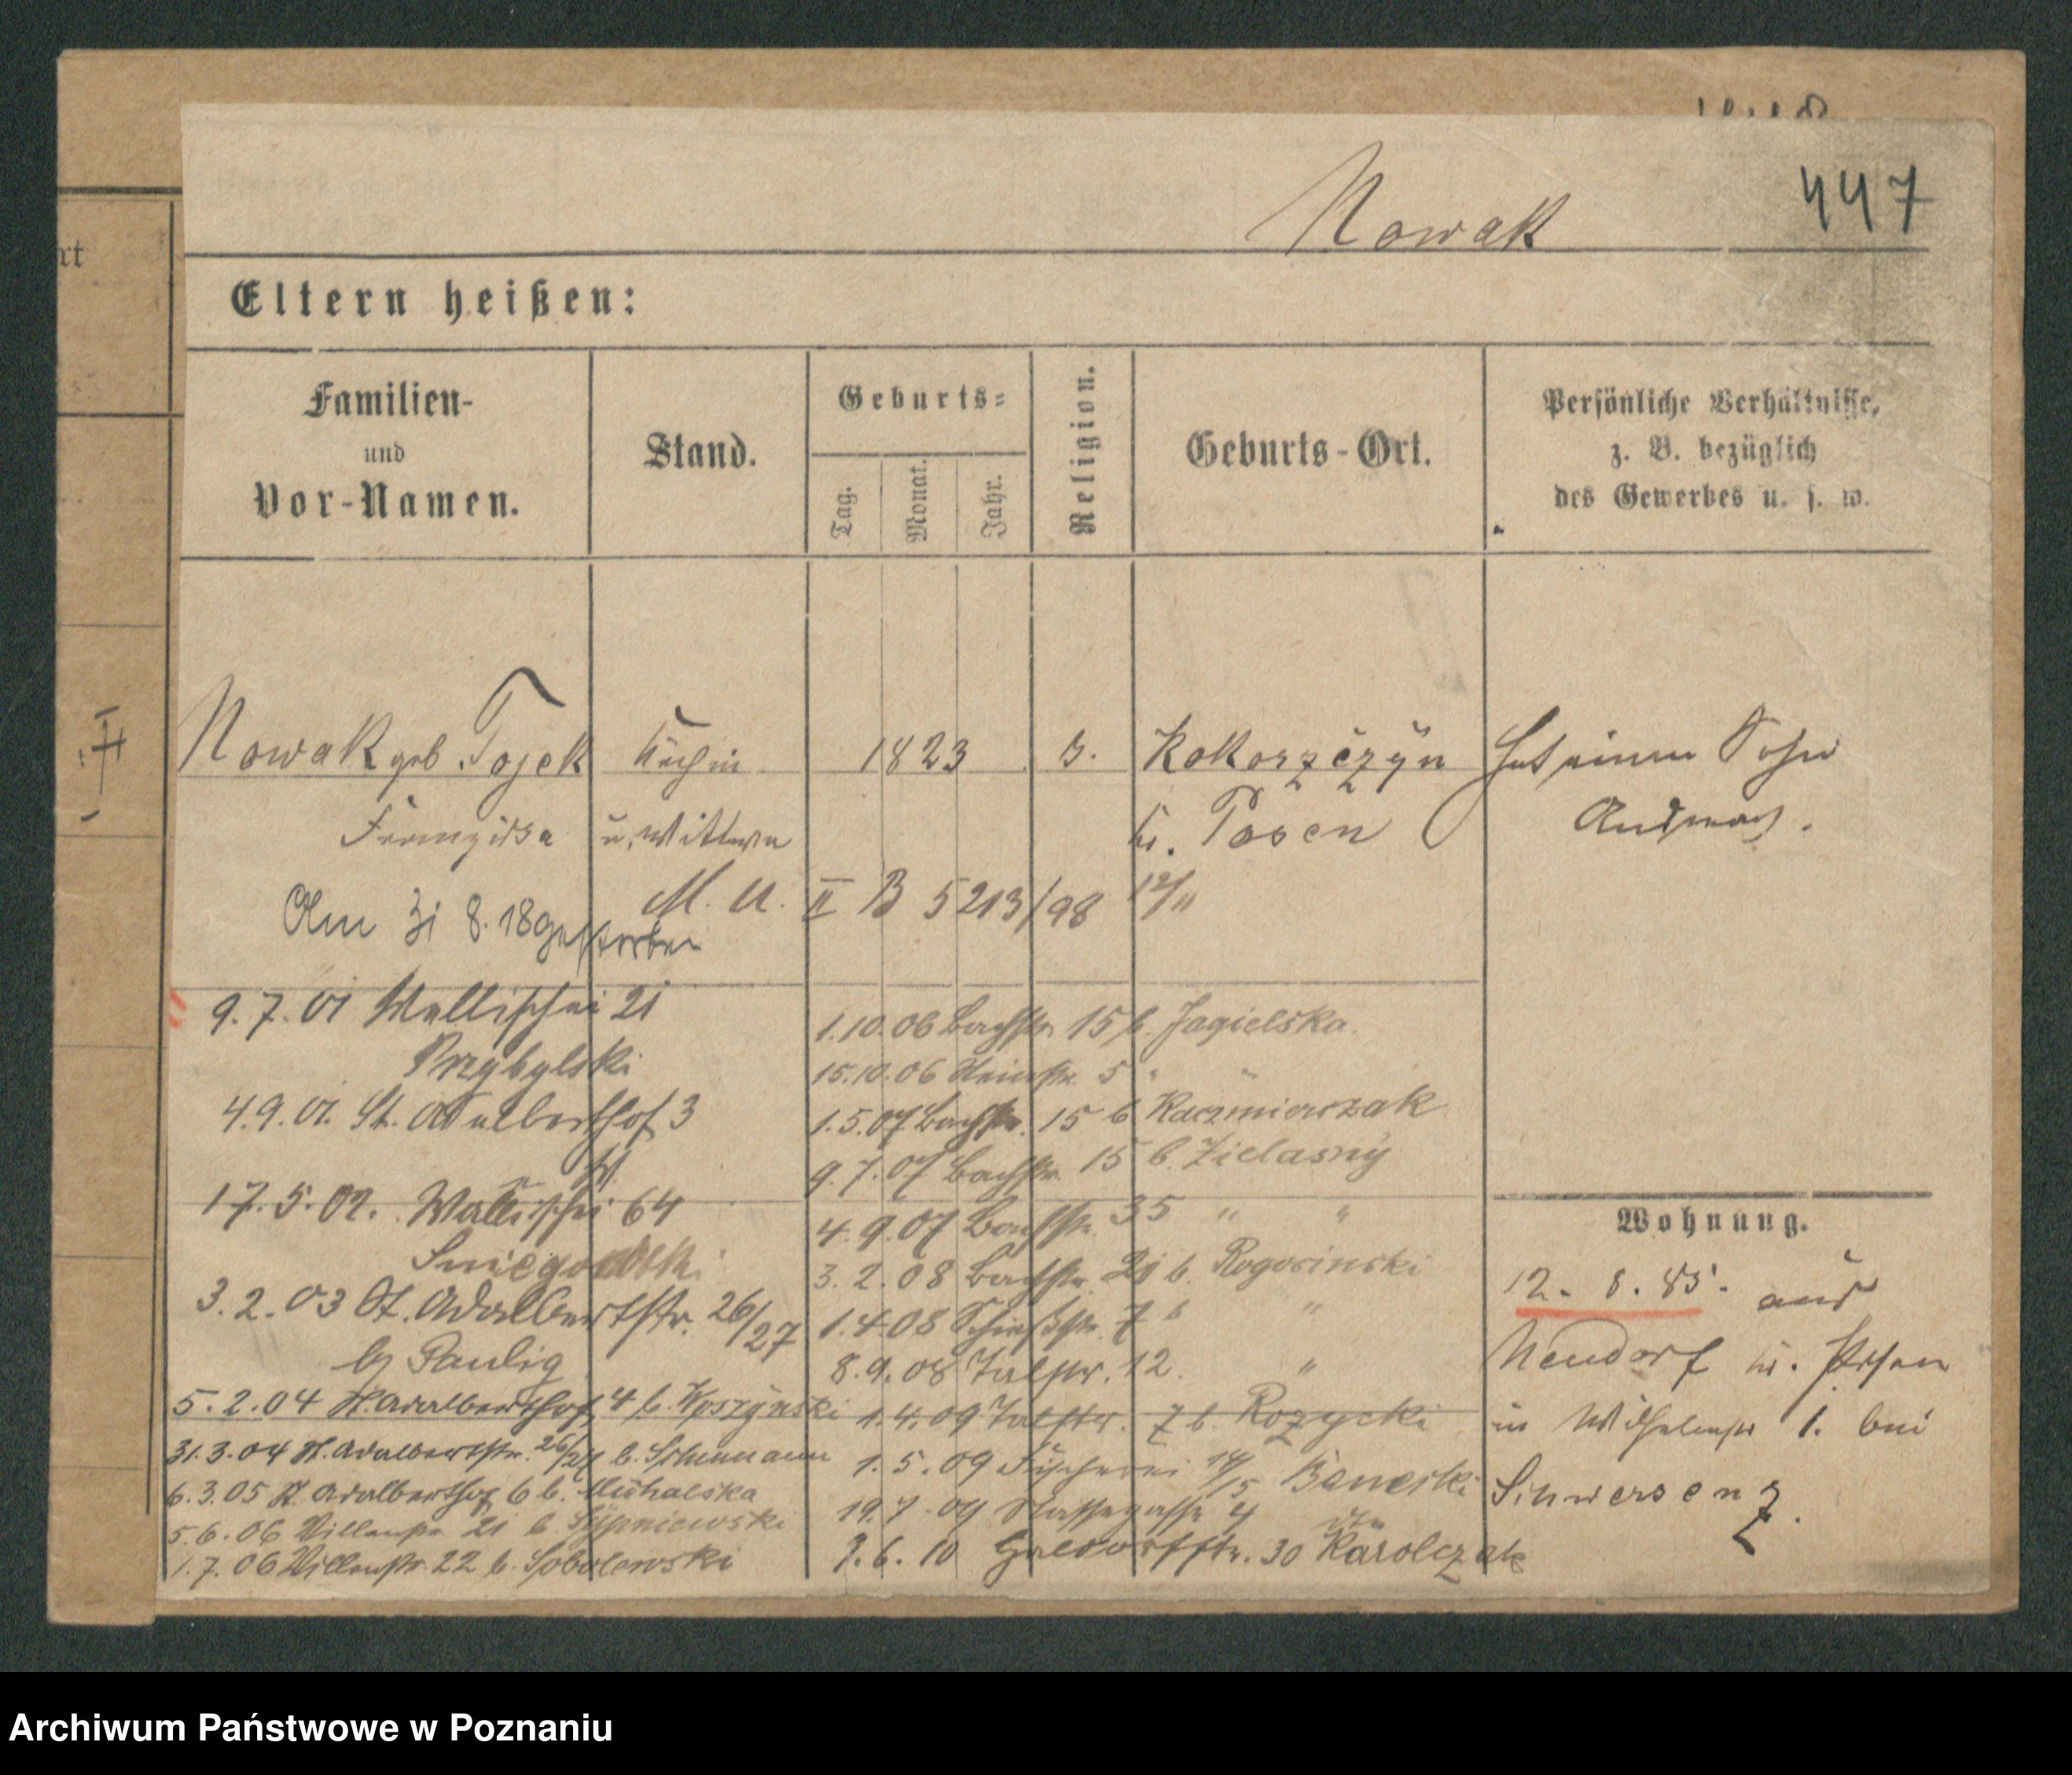 Nowak
447
rt
Eltern heißen:
Familien-
und
Vor-Namen.
Stand.
Geburts-
Tag.
Monat.
Jahr.
Religion.
Geburts-Ort.
Persönliche Verhältnisse,
z. B. bezüglich
des Gewerbes u. s. w.
Nowak geb. Tojek Köchin 1823 Kokorzczyn Hat einen Sohn
Franziska u. Wittwe Kr. Posen Andreas.
M. U. II B 5213/98
Am 31 8. 18 gestorben
9. 7. 01 Wallischei 21
Przybylski
4. 9. 01. St. Adalberthof 3
17. 5. 02. Wallischei 64
3. 2. 03 St. Adalbertstr. 26/27
b Paulig
5. 2. 04 St. Adalberthof 4 b.
31. 3. 04 St. Adalbertstr. 26/27 b.
6. 3. 05 St. Adalberthof 6 b.
5. 6. 06 Villenstr. 21 b.
1. 7. 06 Villenstr. 22 b. Sobolewski
1. 10. 06 Bachstr. 15 b. Jagielska.
15. 10. 06 5 " "
1. 5. 07 Bachstr. 15 b Kaczmierczak
9. 7. 07 Bachstr. 15 b. Zielasny
4. 9. 07 Bachstr. 35 " "
3. 2. 08 Bachstr. 21 b. Rogosinski
1. 4. 08 Schießstr. 7 " "
8. 9. 08 Talstr. 12. "
1. 4. 09 Talstr. 7 b. Rozycki
1. 5. 09 Fischerei 14/15 Banecki
19. 7. 09 4
30 Karolczak
Wohnung.
12. 8. 85. aus
Neudorf Kr. Posen
in Wilhelmstr 1. bei
Schwersenz.
Archiwum Państwowe w Poznaniu